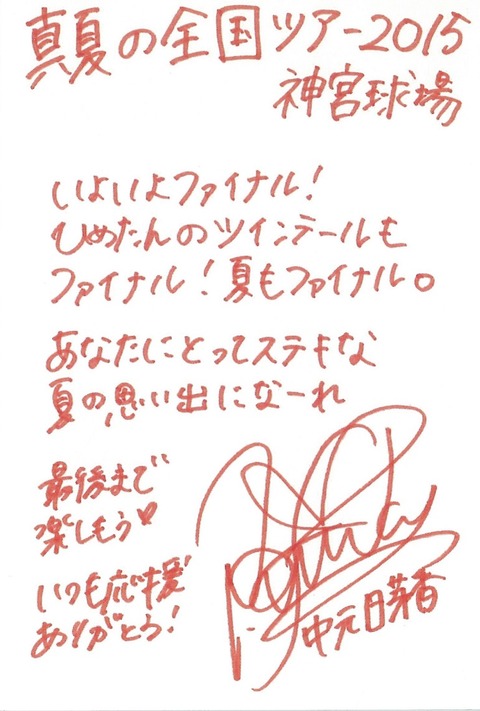 真夏の全国ツアー2015
神宮球場
いよいよファイナル!
ひめたんのツインテールも
ファイナル!夏もファイナル。
あなたにとってステキな
夏の思い出になーれ
最後まで
楽しもう♡
いつも応援
ありがとう!
中元日芽香